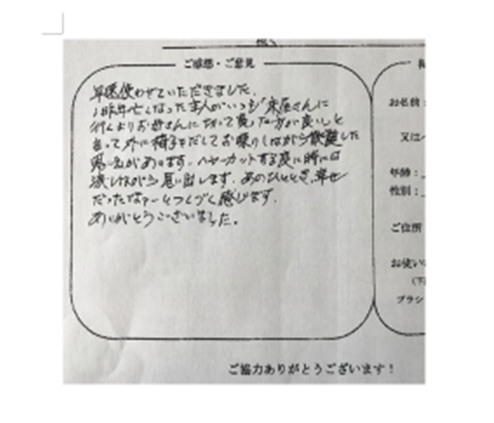 ご感想・ご意見
早速使わせていただきました。
1昨年亡しなった主人がいつも床屋さんに
行くよりお母さんにやって貰った方が良いと
言って外に椅子をだしてお喋りしながら散髪した
思い出があります。ヘヤーカットする度に時には
涙しながら思い出します。あのひととき、幸せ
だったなァーとつくづく感じます。
ありがとうございました。
お名前：
又は
年齢：
性別：
ご住所
お使い
ブラシ
ご協力ありがとうございます！